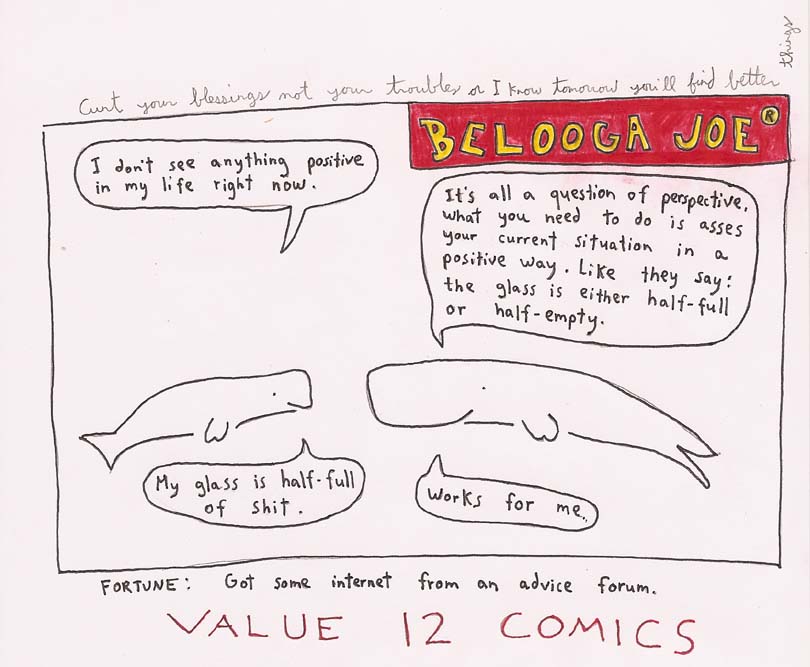 Cunt your blessings not your troubles or I know tomorrow you'll find better things
BELOOGA JOE®
I don't see anything positive
in my life right now.
It's all a question of perspective.
what you need to do is asses
your current situation in a
positive way. Like they say:
the glass is either half-full
or half-empty.
My glass is half-full
of shit.
Works for me..
FORTUNE: Got some internet from an advice forum.
VALUE 12 COMICS